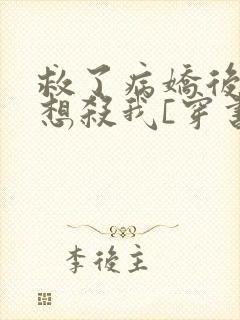 救了病嬌後
想殺我[穿書
李後主